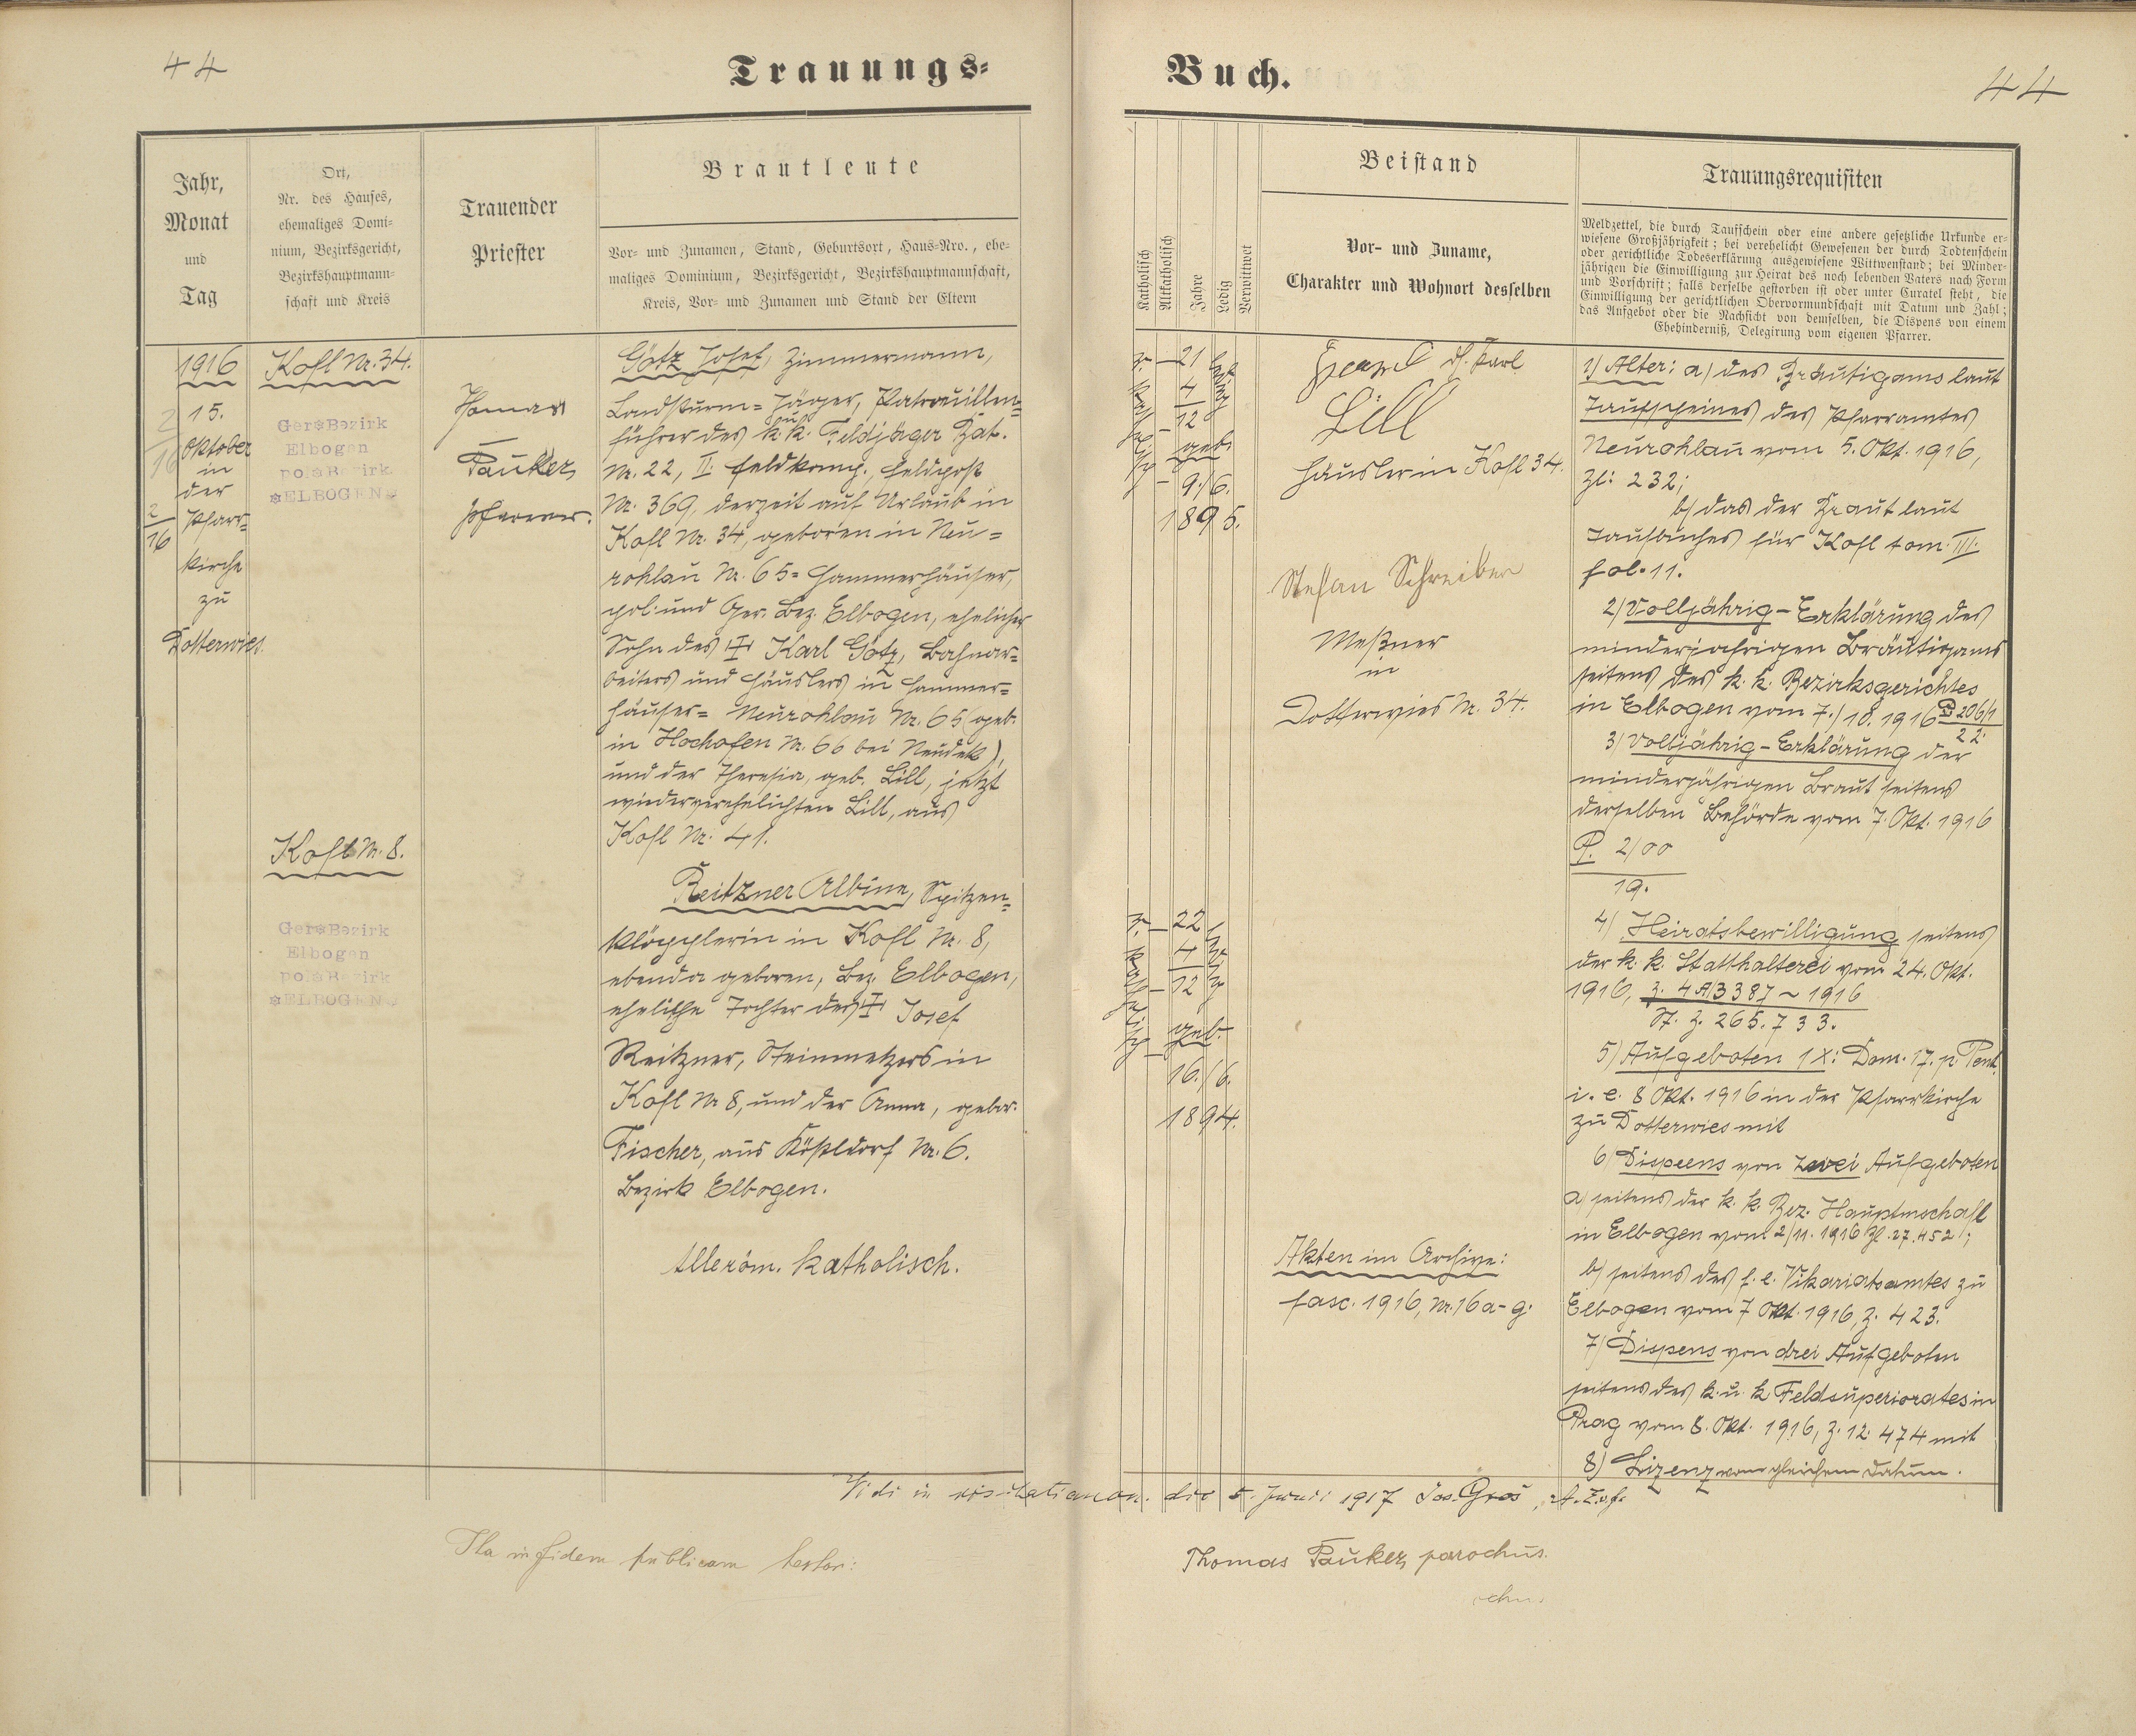 44
Trauungs-
Buch.
44
Jahr,
Monat
und
Tag
Ort,
Nr. des Hauses,
ehemaliges Domi-
nium, Bezirksgericht,
Bezirkshauptmann-
schaft und Kreis
Trauender
Priester
Brautleute
Vor- und Zunamen, Stand, Geburtsort, Haus-Nro., ehe-
maliges Dominium, Bezirksgericht, Bezirkshauptmannschaft,
Kreis, Vor- und Zunamen und Stand der Eltern
Katholisch
Altkatholisch
Jahre
Ledig
Verwittwet
Beistand
Vor- und Zuname,
Charakter und Wohnort desselben
Trauungsrequisiten
Meldzettel, die durch Taufschein oder eine andere gesetzliche Urkunde er-
wiesene Großjährigkeit; bei verehelicht Gewesenen der durch Todtenschein
oder gerichtliche Todeserklärung ausgewiesene Wittwenstand; bei Minder-
jährigen die Einwilligung zur Heirat des noch lebenden Vaters nach Form
und Vorschrift; falls derselbe gestorben ist oder unter Curatel steht, die
Einwilligung der gerichtlichen Obervormundschaft mit Datum und Zahl;
das Aufgebot oder die Nachsicht von demselben, die Dispens von einem
Ehehinderniß, Delegirung vom eigenen Pfarrer.
1916
15.
Oktober
in
der
Pfarr-
kirche
zu
Dotterwies.
2
16
Kofl Nr. 34.
Ger. Bezirk
Elbogen
pol. Bezirk
ELBOGEN
Kofl Nr. 8.
Ger. Bezirk
Elbogen
pol. Bezirk
ELBOGEN
Thomas
Pauker,
Pfarrer.
Götz Josef, Zimmermann,
Landsturm-Jäger, Patrouillen-
führer des k. k. Feldjäger Bat.
Nr. 22, II. Feldkomp., Feldpost
Nr. 369, derzeit auf Urlaub in
Kofl Nr. 34, geboren in Neu-
rohlau Nr. 65-Hammerhäuser,
pol. und Ger. Bez. Elbogen, ehelicher
Sohn des † Karl Götz, Bahnar-
beiters und Häuslers in Hammer-
häuser-Neurohlau Nr. 65 (geb.
in Hochofen Nr. 66 bei Neudek),
und der Theresia, geb. Lill, jetzt
wiederverehelichten Lill, aus
Kofl Nr. 41.
Reitzner Albine, Spitzen-
klöpplerin in Kofl Nr. 8,
ebenda geboren, Bez. Elbogen,
eheliche Tochter des † Josef
Reitzner, Steinmetzers in
Kofl Nr. 8, und der Anna, gebor.
Fischer, aus Kößeldorf Nr. 6.
Bezirk Elbogen.
Alle röm. katholisch.
r.
katholisch
21
4
12
geb.
9./6.
1895.
ledig
r.
katholisch
22
4
12
geb.
16./6.
1894.
ledig
Karl
Lill
Häusler in Kofl 34.
Stefan Schreiber
Meßner
in
Dotterwies Nr. 34.
Akten im Archive:
fasc. 1916, Nr. 16 a-g.
1) Alter: a) des Bräutigams laut
Taufscheines des Pfarramtes
Neurohlau vom 5. Okt. 1916,
Zl: 232;
b) das der Braut laut
Taufbuches für Kofl tom. III.
fol. 11.
2) Volljährig-Erklärung des
minderjährigen Bräutigams
seitens des k. k. Bezirksgerichtes
in Elbogen vom 7./10. 1916 P. 206/1
22.
3) Volljährig-Erklärung der
minderjährigen Braut seitens
derselben Behörde vom 7. Okt. 1916
P. 2/00
19.
4) Heiratsbewilligung seitens
der k. k. Statthalterei vom 24. Okt.
1916, z. 4 A/3387 ~ 1916
N. z. 265.733.
5) Aufgeboten 1 X: Dom. 17. p. Pent.
i. e. 8 Okt. 1916 in der Pfarrkirche
zu Dotterwies mit
6) Dispens von zwei Aufgeboten
a) seitens der k. k. Bez. Hauptmschaft
in Elbogen vom 2/11. 1916 Zl. 27.452;
b) seitens des f. e. Vikariatsamtes zu
Elbogen vom 7 Okt. 1916, z. 423.
7) Dispens von drei Aufgeboten
seitens des k. u. k. Feldsuperiorates in
Prag vom 8. Okt. 1916, z. 12.474 mit
8) Lizenz vom gleichen Datum.
Vidi in visitatione can. die 5. Junii 1917 Jos. Groß,
Ita in fidem publicam testor:
Thomas Pauker, parochus.